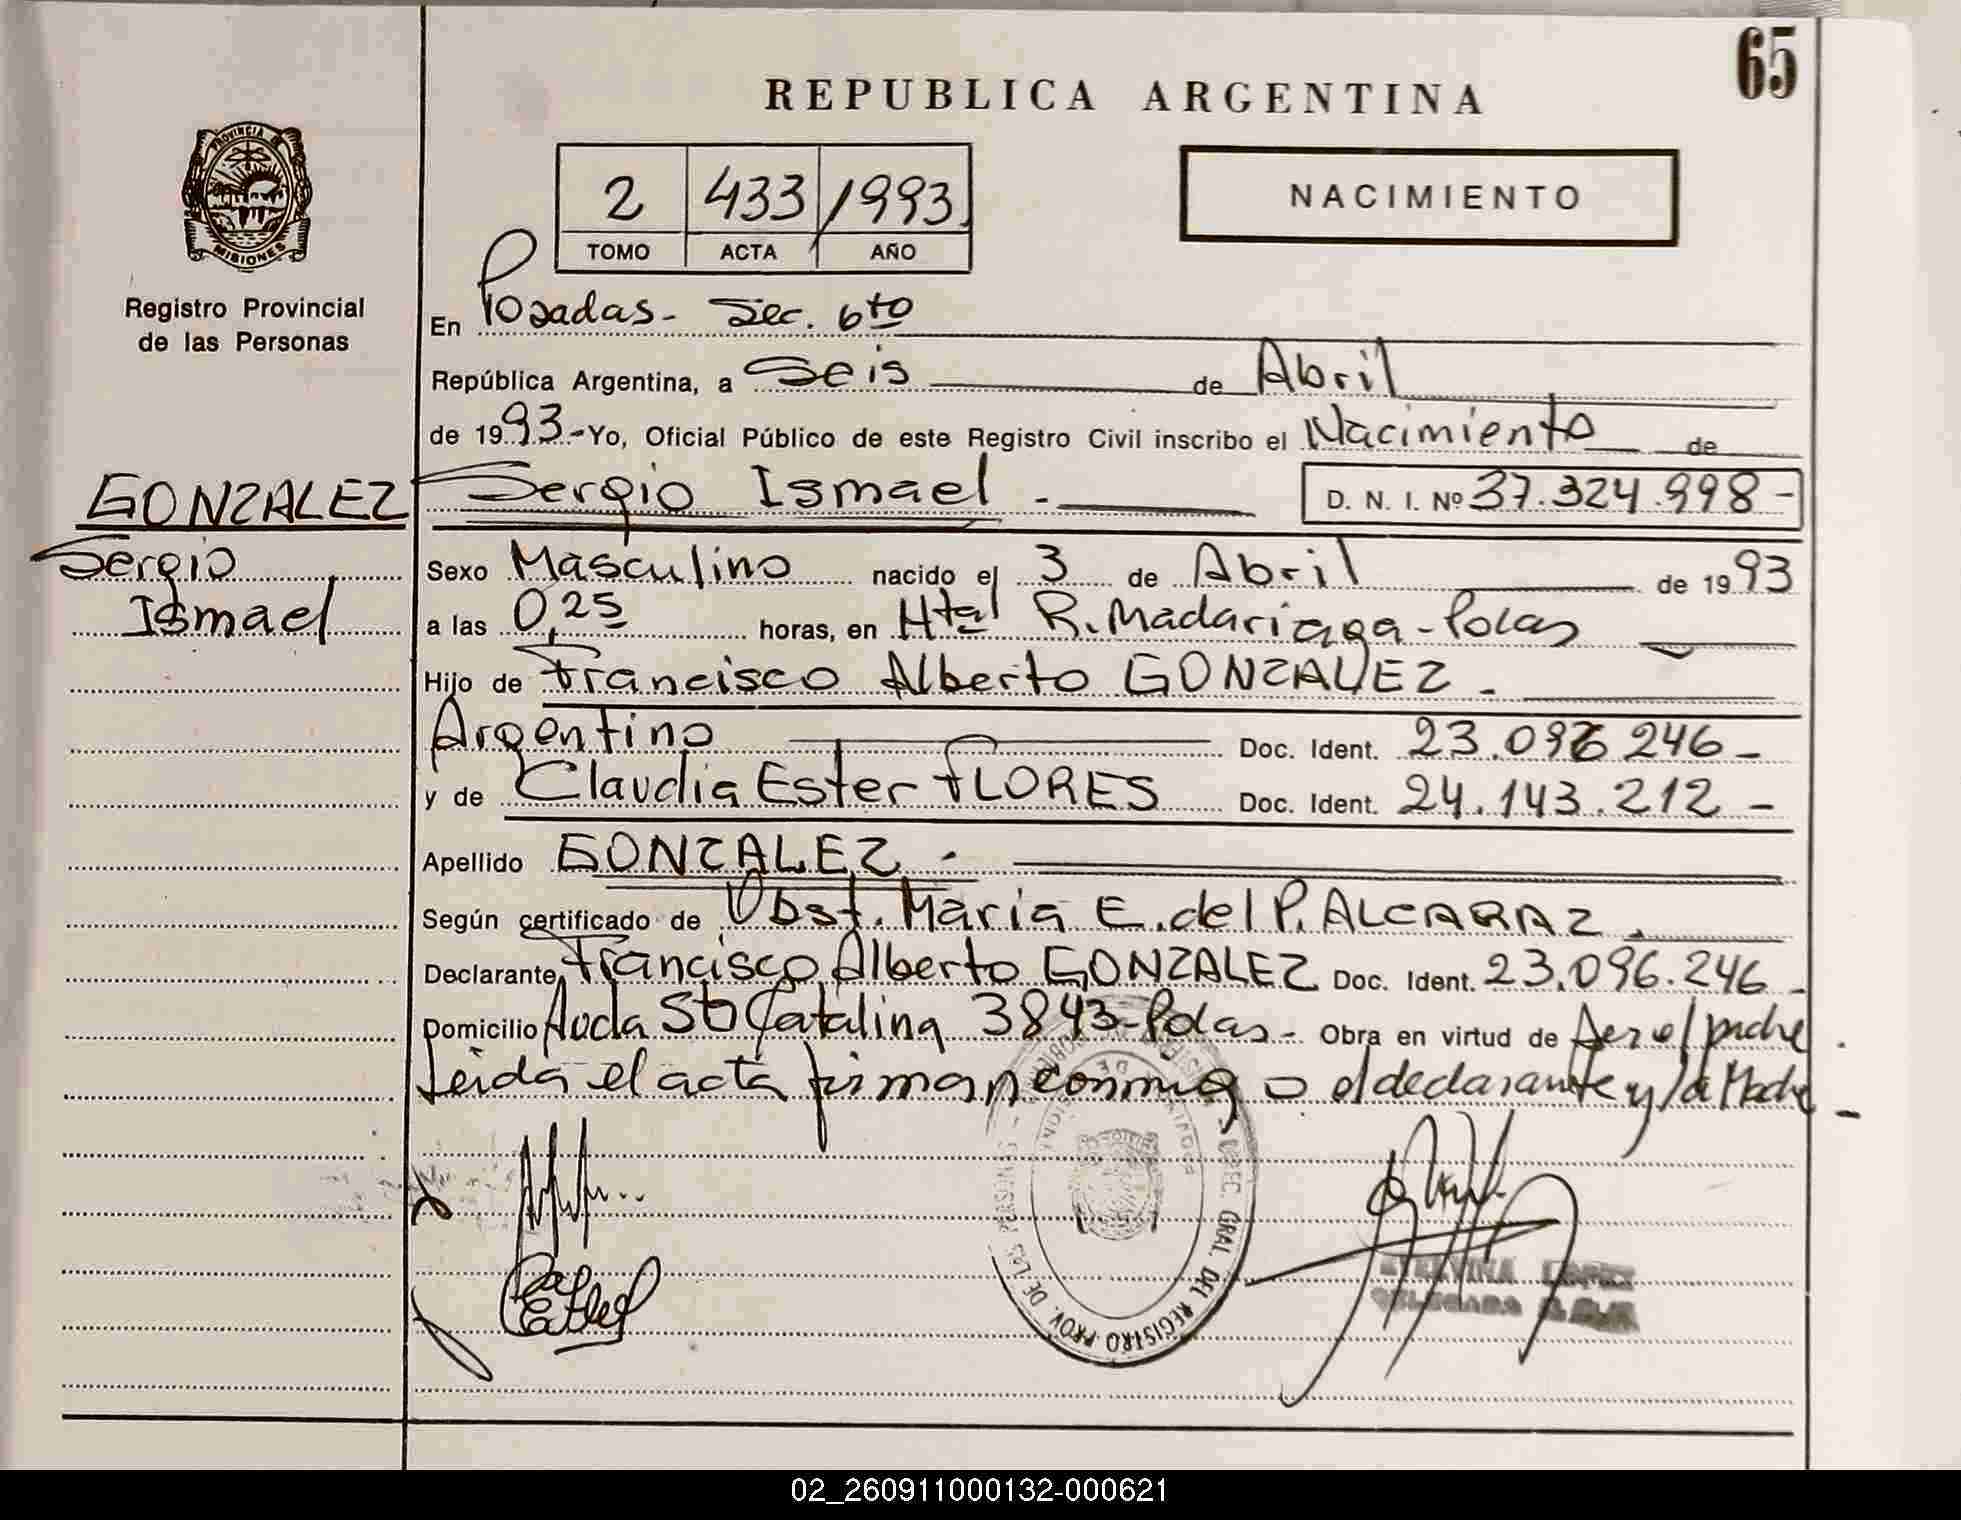 65
REPUBLICA ARGENTINA
PROVINCIA DE
MISIONES
Registro Provincial
de las Personas
2 433 1993
TOMO ACTA AÑO
NACIMIENTO
En Posadas - Sec. 6to
República Argentina, a Seis de Abril
de 1993 - Yo, Oficial Público de este Registro Civil inscribo el Nacimiento de
GONZALEZ
Sergio
Ismael
Sergio Ismael - D. N. I. Nº 37.324.998 -
Sexo Masculino nacido el 3 de Abril de 1993
a las 0,25 horas, en Htal R. Madariaga - Pdas
Hijo de Francisco Alberto GONZALEZ -
Argentino Doc. Ident. 23.096 246 -
y de Claudia Ester FLORES Doc. Ident. 24.143.212 -
Apellido GONZALEZ -
Según certificado de Obst. Maria E. del P. ALCARAZ.
Declarante Francisco Alberto GONZALEZ Doc. Ident. 23.096.246 -
Domicilio Avda Sta Catalina 3843 - Pdas - Obra en virtud de ser el padre.
Leida el acta firman conmigo el declarante y la Madre -
DIREC. GRAL. DEL REGISTRO PROV. DE LAS PERSONAS -
ETELVINA LOPEZ
02_260911000132-000621